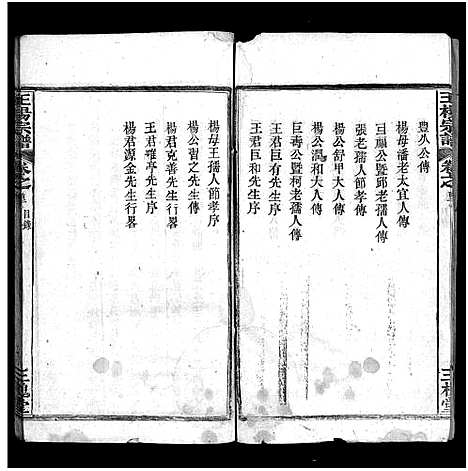 王楊宗譜
卷之
三槐堂
豐八公傳
楊母潘老太宜人傳
張老孺人節孝傳
楊公舒甲大人傳
楊公潤和大人傳
巨壽公暨柯老孺人傳
王君巨有先生序
王君巨和先生序
楊母王孺人節孝序
楊公習之先生傳
楊君克善先生行畧
王君確亭先生序
楊君源金先生行畧
王楊宗譜
卷之
目錄
三槐堂